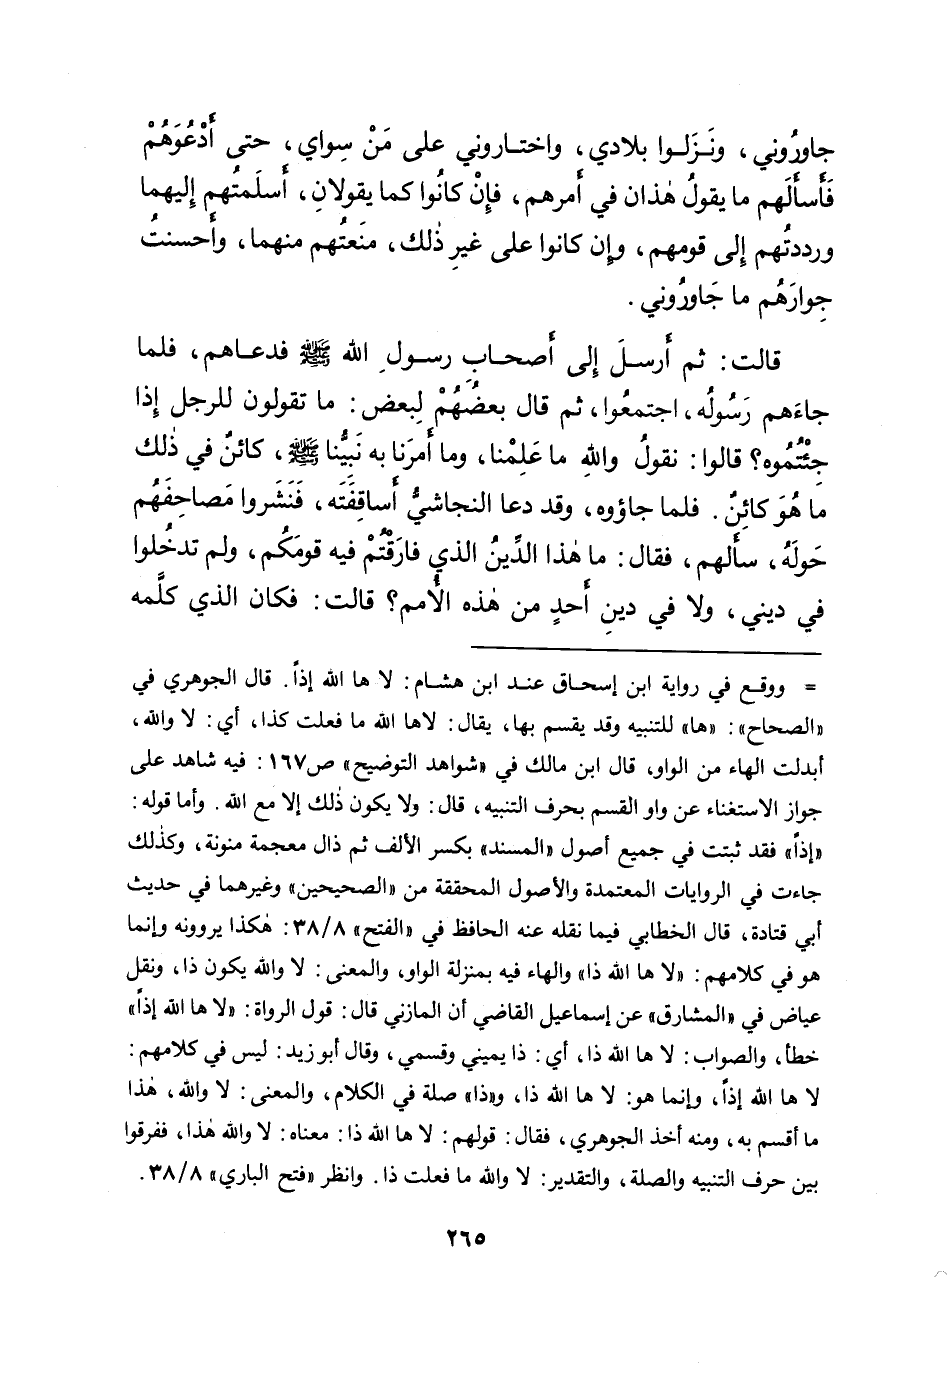 جاورُوني، ونَـزَلـوا بلادي، واختـاروني على مَنْ سِواي، حتى أَدْعُوَهُمْ
فَأَسأَلَهم ما يقولُ هٰذان في أَمرهم، فإنْ كانُوا كما يقولانِ، أَسلَمتُهم إليهما
ورددتُهم إلى قومهم، وإن كانوا على غيرِ ذٰلك، منَعتُهم منهما، وأَحسنتُ
جِوارَهُم ما جَاورُوني.
قالت: ثم أَرسـلَ إلى أَصحـابِ رسـولِ الله ﷺ فدعـاهم، فلما
جاءَهم رَسُولُه، اجتمعُوا، ثم قال بعضُهُمْ لِبعض: ما تقولون للرجل إذا
جِئْتُمُوه؟ قالوا: نقولُ واللهِ ما عَلِمْنا، وما أَمرَنا به نَبِيُّنا ﷺ، كائنٌ في ذٰلك
ما هُوَ كائِنٌ. فلما جاؤوه، وقد دعا النجاشيُّ أَساقِفَتَه، فَنَشَروا مَصاحِفَهُم
حَولَهُ، سأَلهم، فقال: ما هٰذا الدِّينُ الذي فارَقْتُمْ فيه قومَكُم، ولم تدخُلوا
في ديني، ولا في دينِ أَحدٍ من هٰذه الأُمم؟ قالت: فكان الذي كلَّمه
= ووقـع في رواية ابن إسحـاق عنـد ابن هشـام: لا ها الله إذاً. قال الجوهري في
«الصحاح»: «ها» للتنبيه وقد يقسم بها، يقال: لاها الله ما فعلت كذا، أي: لا والله،
أبدلت الهاء من الواو، قال ابن مالك في «شواهد التوضيح» ص١٦٧: فيه شاهد على
جواز الاستغناء عن واو القسم بحرف التنبيه، قال: ولا يكون ذٰلك إلا مع الله. وأما قوله:
«إذاً» فقد ثبتت في جميع أصول «المسند» بكسر الألف ثم ذال معجمة منونة، وكذٰلك
جاءت في الروايات المعتمدة والأصول المحققة من «الصحيحين» وغيرهما في حديث
أبي قتادة، قال الخطابي فيما نقله عنه الحافظ في «الفتح» ٣٨/٨: هٰكذا يروونه وإنما
هو في كلامهم: «لا ها الله ذا» والهاء فيه بمنزلة الواو، والمعنى: لا والله يكون ذا، ونقل
عياض في «المشارق» عن إسماعيل القاضي أن المازني قال: قول الرواة: «لا ها الله إذاً»
خطأ، والصواب: لا ها الله ذا، أي: ذا يميني وقسمي، وقال أبو زيد: ليس في كلامهم:
لا ها الله إذاً، وإنما هو: لا ها الله ذا، و«ذا» صلة في الكلام، والمعنى: لا والله، هٰذا
ما أقسم به، ومنه أخذ الجوهري، فقال: قولهم: لا ها الله ذا: معناه: لا والله هٰذا، ففرقوا
بين حرف التنبيه والصلة، والتقدير: لا والله ما فعلت ذا. وانظر «فتح الباري» ٣٨/٨.
٢٦٥